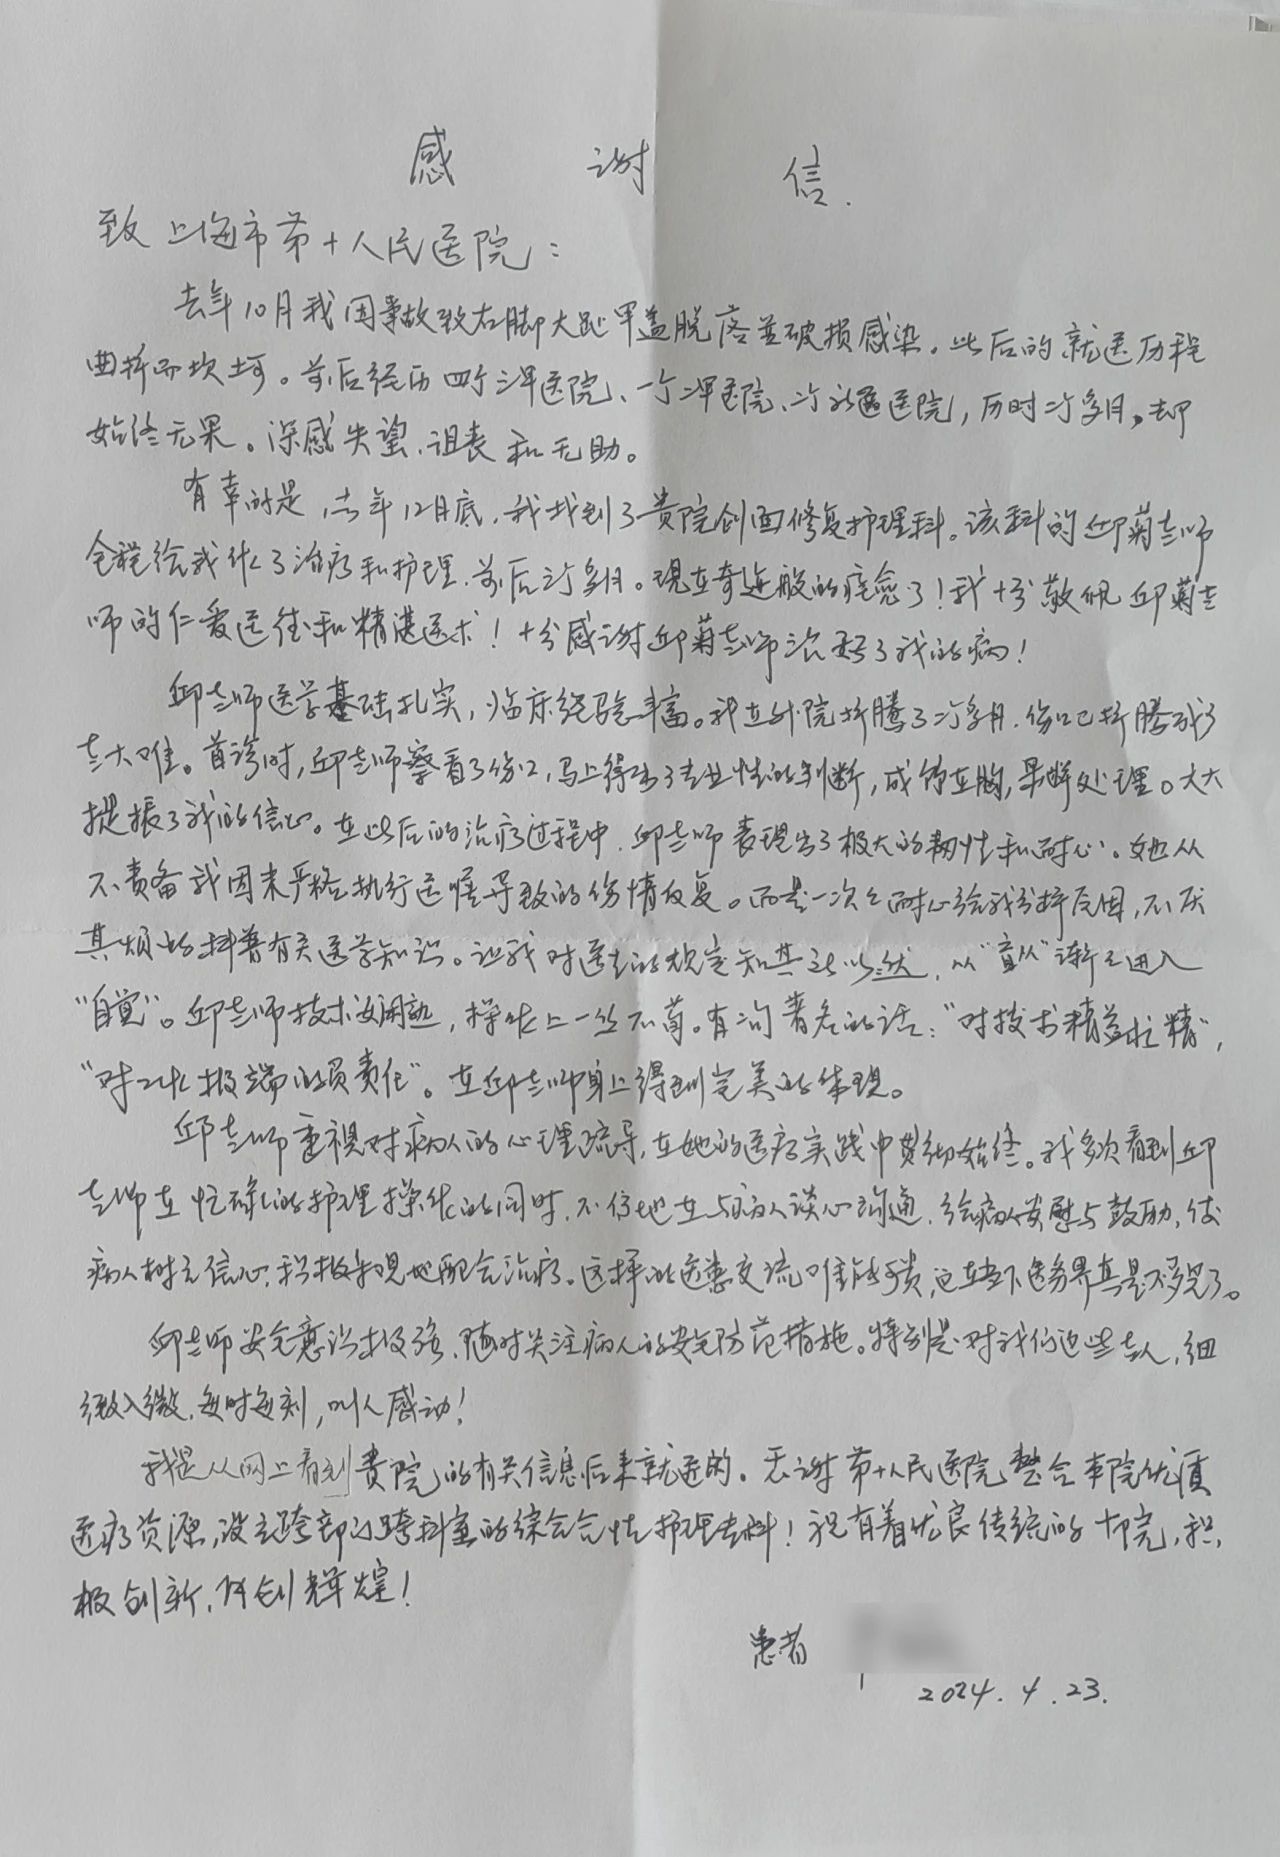 感谢信.
致上海市第十人民医院：
去年10月我因事故致右脚大趾甲盖脱落并破损感染。此后的就医历程
曲折而坎坷。前后经历四个三甲医院、一个二甲医院、二个社区医院，历时二个多月，却
始终无果。深感失望、沮丧和无助。
有幸的是，去年12月底，我找到了贵院创面修复护理科。该科的邱菊老师
全程给我作了治疗和护理，前后三个多月。现在奇迹般的痊愈了！我十分敬佩邱菊老
师的仁爱医德和精湛医术！十分感谢邱菊老师治好了我的病！
邱老师医学基础扎实，临床经验丰富。我在外院折腾了二个多月，伤口已折腾成了
老大难。首诊时，邱老师察看了伤口，马上得出了专业性的判断，成竹在胸，果断处理。大大
提振了我的信心。在此后的治疗过程中，邱老师表现出了极大的韧性和耐心。她从
不责备我因未严格执行医嘱导致的伤情反复。而是一次次耐心给我分析原因，不厌
其烦地科普有关医学知识。让我对医生的规定知其所以然，从“盲从”渐渐进入
“自觉”。邱老师技术娴熟，操作上一丝不苟。有二句著名的话：“对技术精益求精”，
“对工作极端的负责任”。在邱老师身上得到完美的体现。
邱老师重视对病人的心理疏导，在她的医疗实践中贯彻始终。我多次看到邱
老师在忙碌的护理操作的同时，不停地在与病人谈心沟通，给病人安慰与鼓励，使
病人树立信心，积极乐观地配合治疗。这样的医患交流难能可贵，这在当下医务界真是不多见了。
邱老师安全意识极强，随时关注病人的安全防范措施。特别是对我们这些老人，细
致入微，每时每刻，叫人感动！
我是从网上看到贵院的有关信息后来就医的。感谢第十人民医院整合本院优质
医疗资源，设立跨部门跨科室的综合性护理专科！祝有着优良传统的十院，积
极创新，再创辉煌！
患者
2024.4.23.